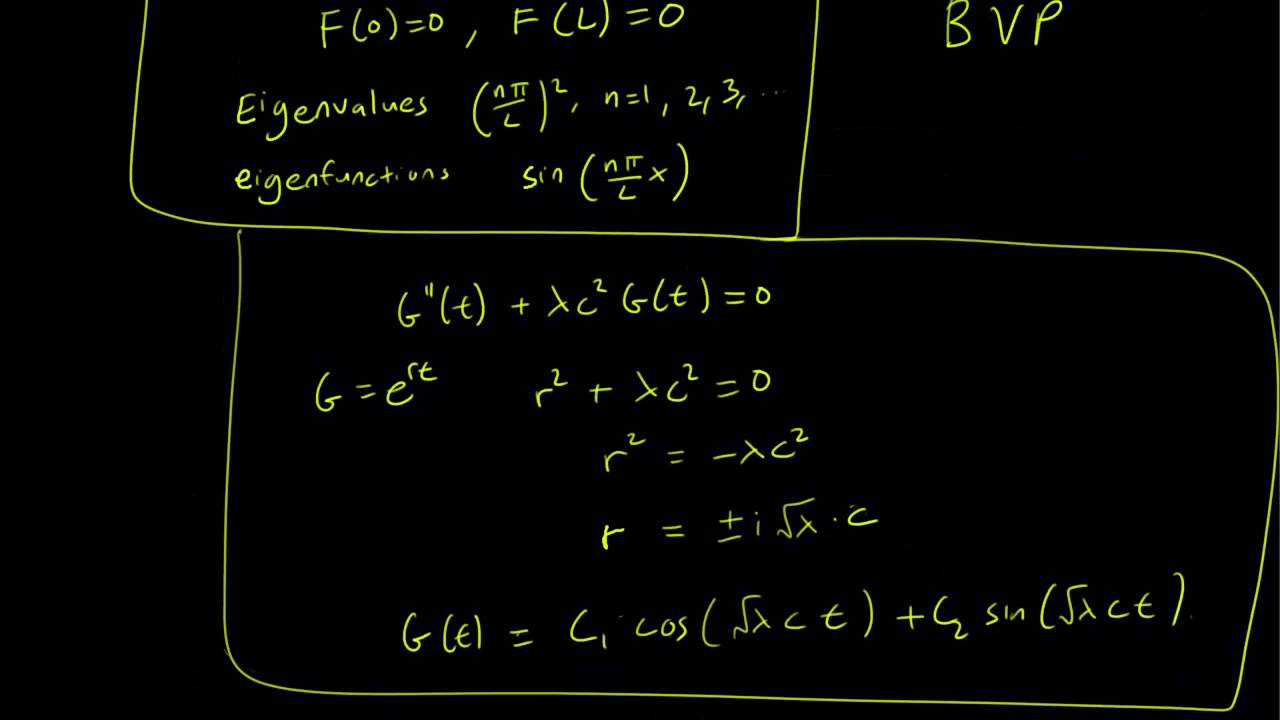 F(0)=0, F(L)=0
BVP
Eigenvalues (nπ/L)², n=1, 2, 3, ...
eigenfunctions sin(nπ/L x)
G''(t) + λc² G(t) = 0
G = e^rt r² + λc² = 0
r² = -λc²
r = ±i√λ · c
G(t) = C₁ cos(√λ c t) + C₂ sin(√λ c t).